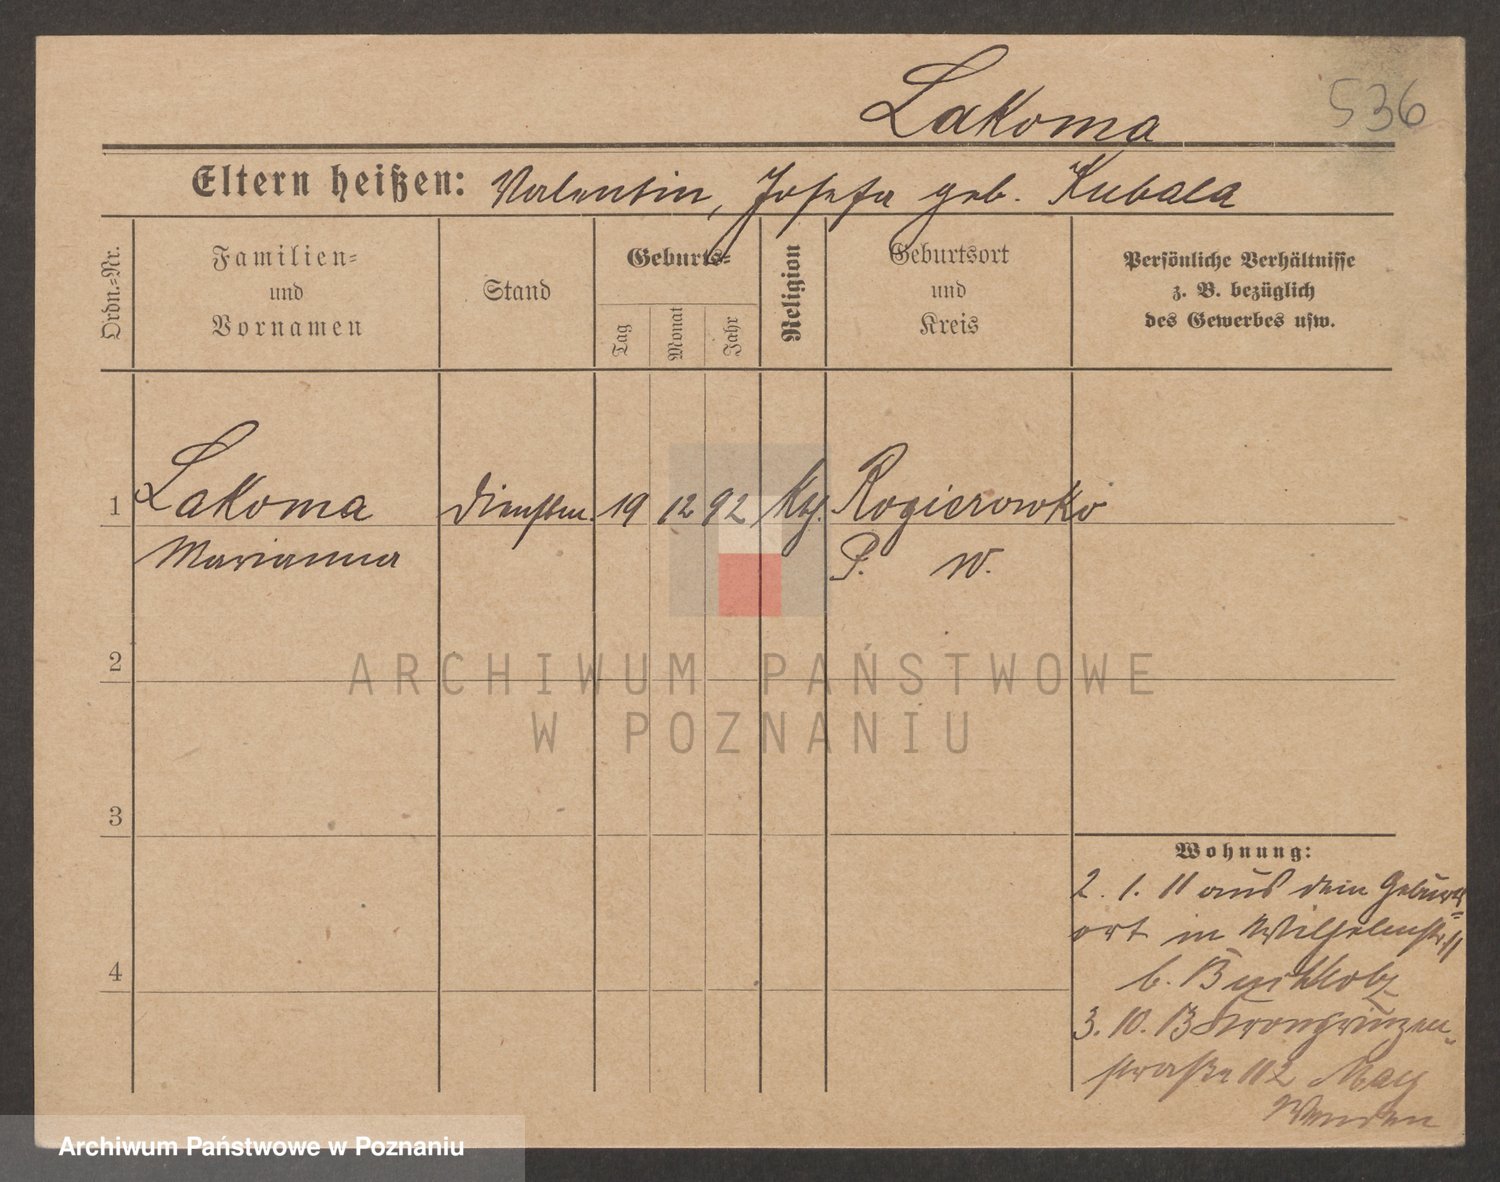 Lakoma
536
Eltern heißen: Valentin, Josefa geb. Kubala
Ordn.-Nr.
Familien- und Vornamen
Stand
Geburts-
Tag
Monat
Jahr
Religion
Geburtsort und Kreis
Persönliche Verhältnisse
z. B. bezüglich
des Gewerbes usw.
1 Lakoma Dienstm. 19 12 92 kth. Rogierowko
Marianna P. W.
2
ARCHIWUM PAŃSTWOWE
W POZNANIU
3
Wohnung:
2. 1. 11 aus dem Geburts-
ort in Wilhelmstr. 11
4
b. Buchholz
3. 10. 13 Kronprinzen-
straße 112
Archiwum Państwowe w Poznaniu